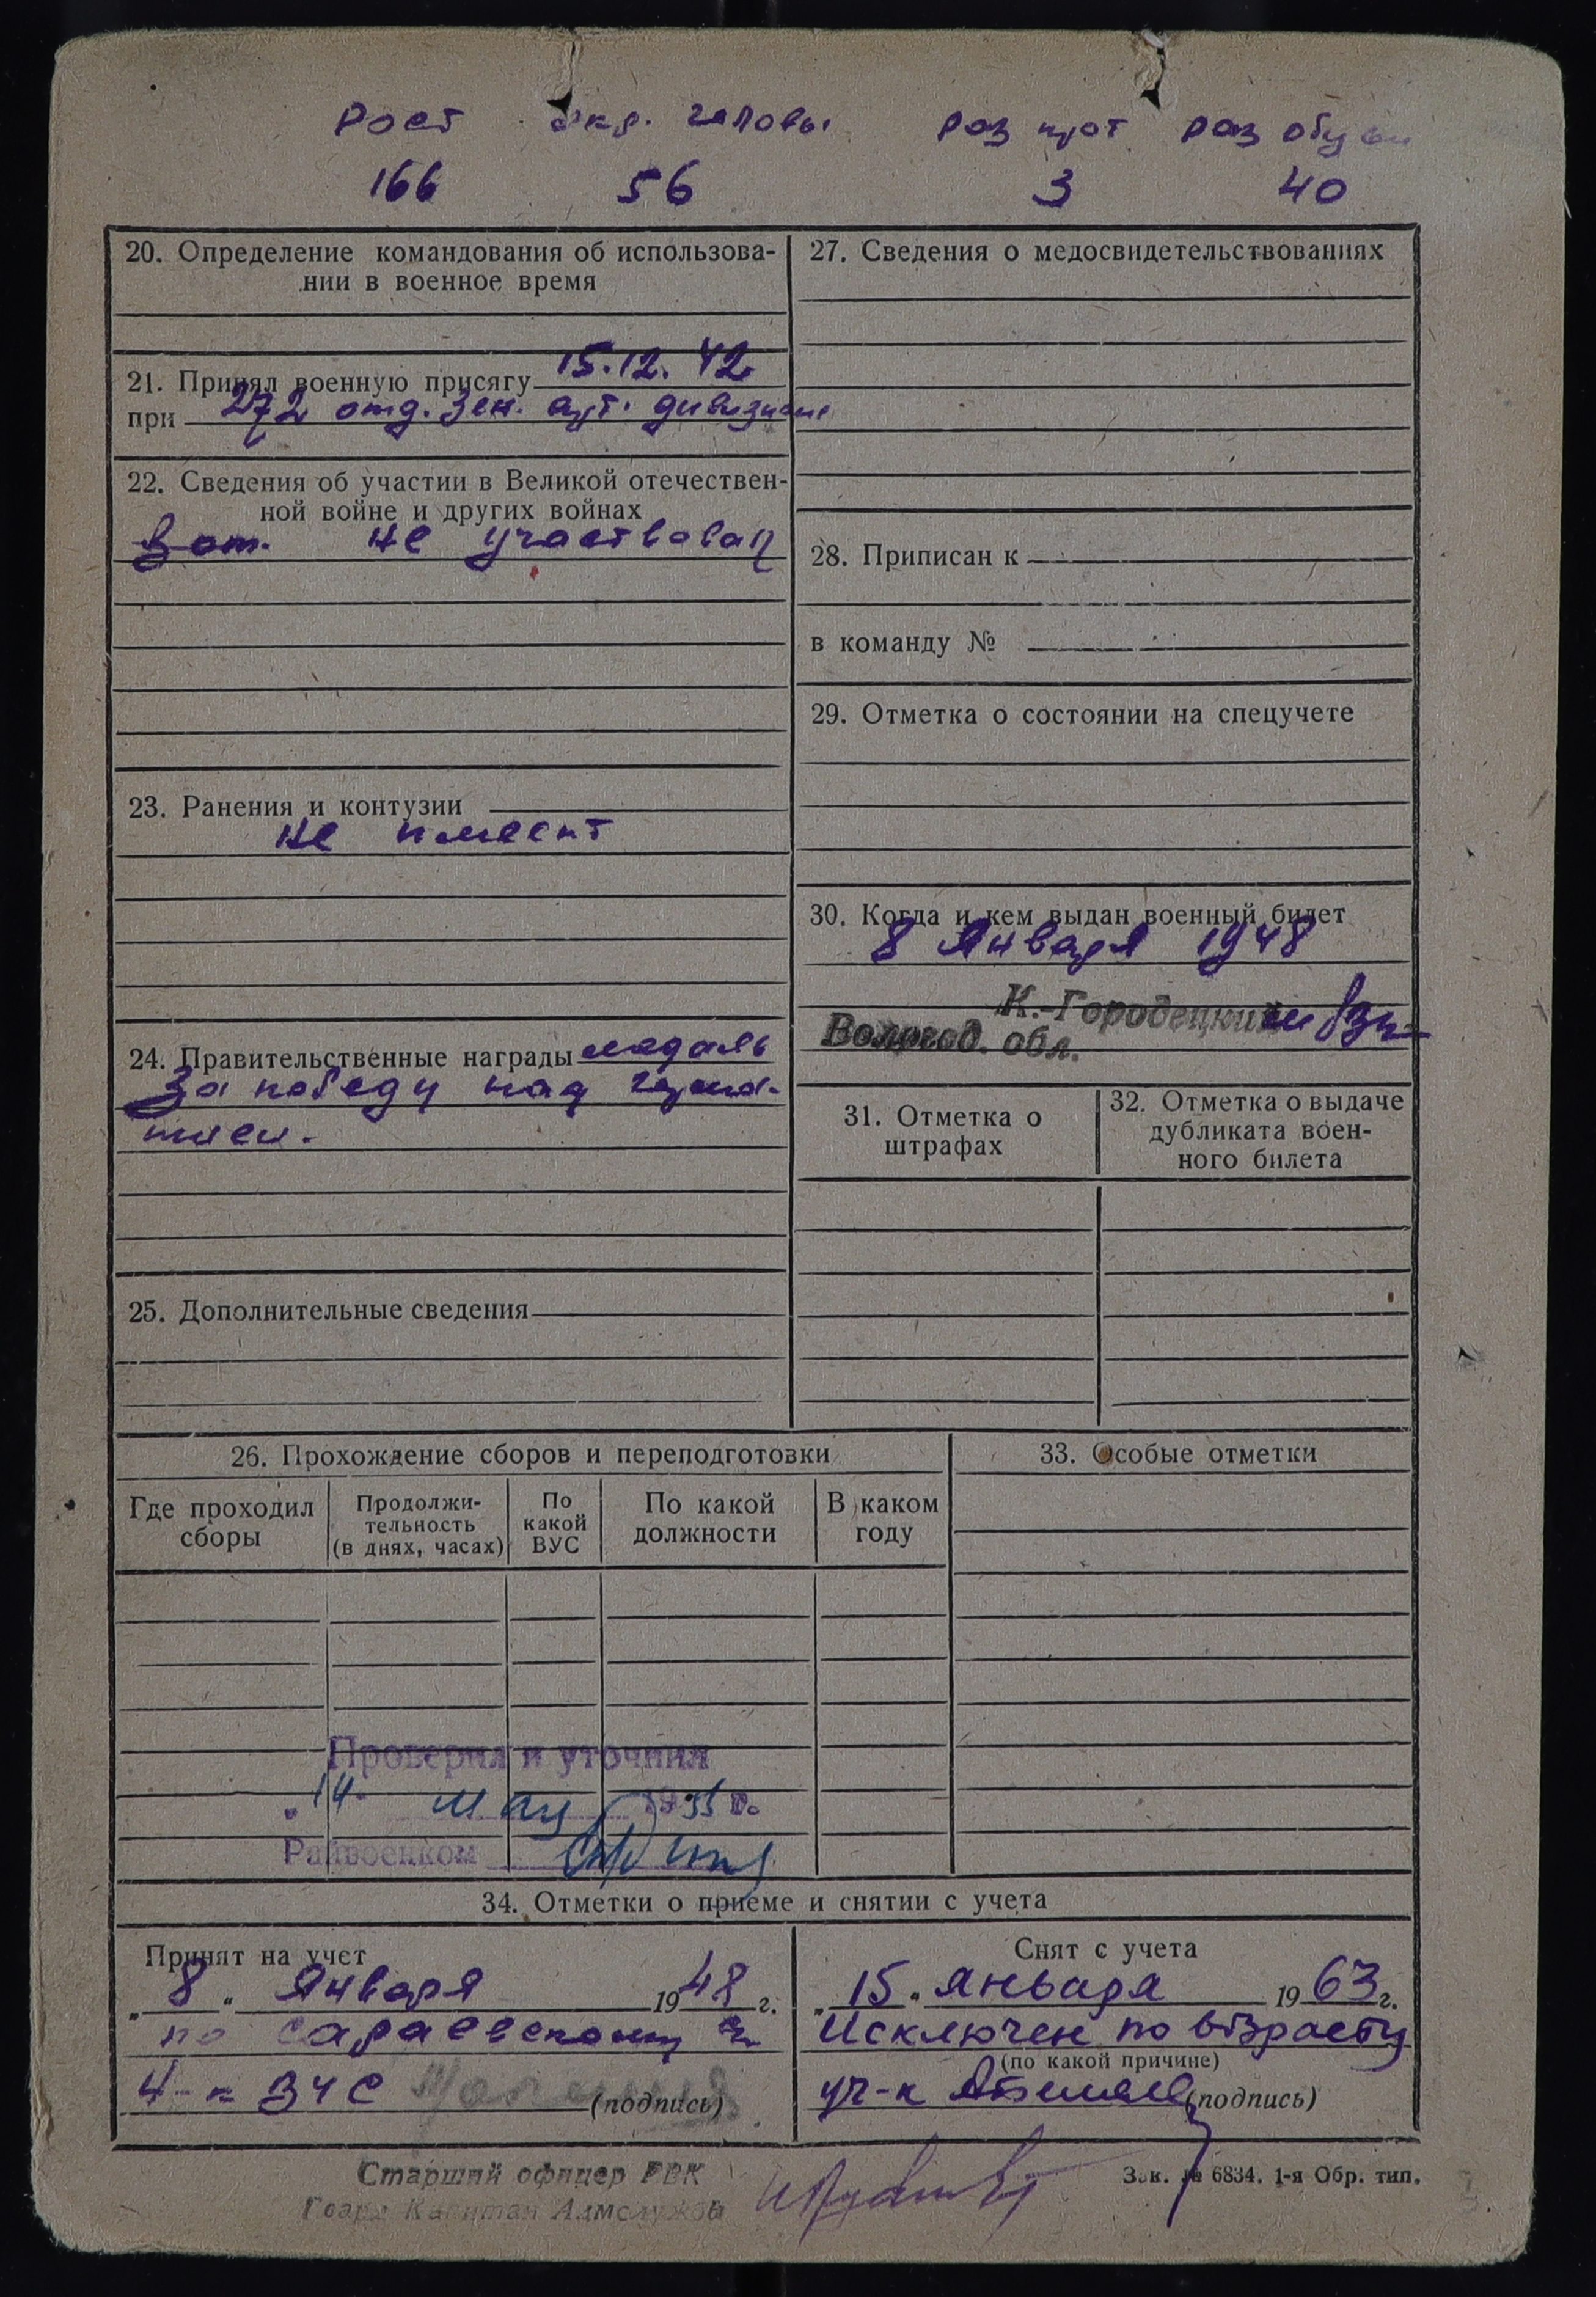 Рост окр. головы раз прот раз обуви
166 56 3 40
20. Определение командования об использова-
нии в военное время
21. Принял военную присягу 15.12.42
при 272 отд. зен. арт. дивизионе
22. Сведения об участии в Великой отечествен-
ной войне и других войнах
В от. не участвовал
23. Ранения и контузии
не имеет
24. Правительственные награды медаль
За победу над герма-
нией.
25. Дополнительные сведения
27. Сведения о медосвидетельствованиях
28. Приписан к
в команду №
29. Отметка о состоянии на спецучете
30. Когда и кем выдан военный билет
8 Января 1948
К.-Городецким
Вологод. обл.
31. Отметка о
штрафах
32. Отметка о выдаче
дубликата воен-
ного билета
26. Прохождение сборов и переподготовки
Где проходил
сборы
Продолжи-
тельность
(в днях, часах)
По
какой
ВУС
По какой
должности
В каком
году
33. Особые отметки
Проверил и уточнил
"14 мая 1955 г.
Райвоенком
34. Отметки о приеме и снятии с учета
Принят на учет
„ 8 " Января 1948 г.
по сараевскому
(подпись)
Снят с учета
„ 15 " января 1963 г.
Исключен по возрасту
(по какой причине)
(подпись)
Старший офицер РВК
Гвард Капитан
Зак. № 6834. 1-я Обр. тип.